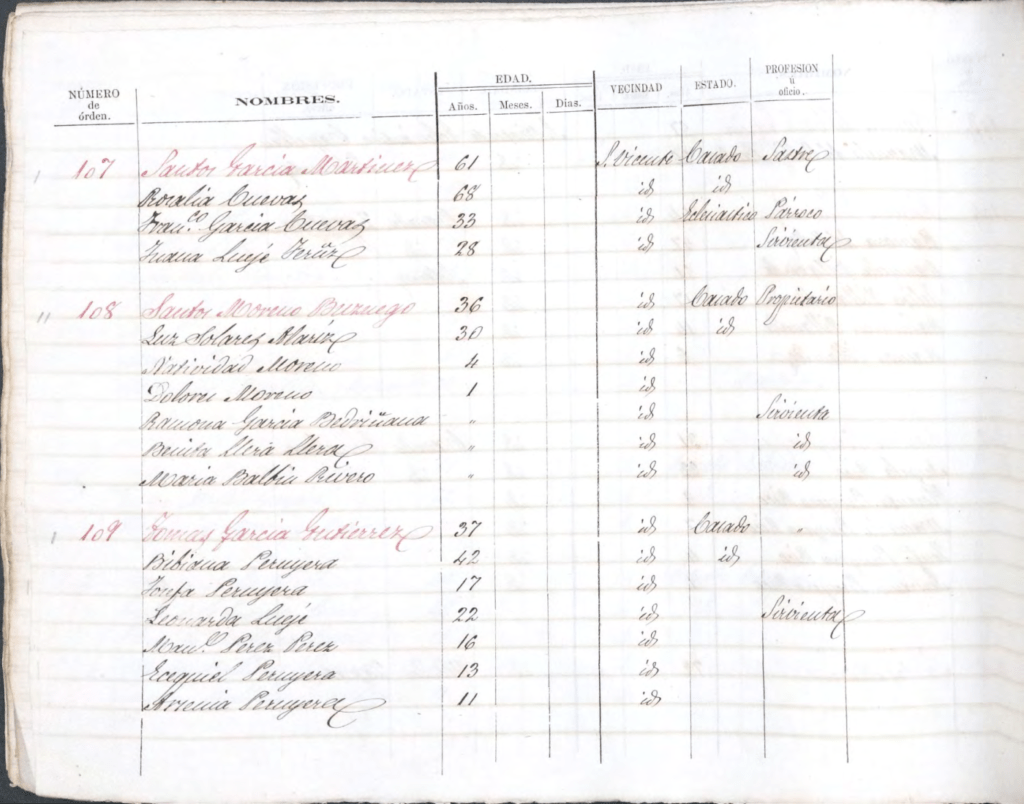 NÚMERO de órden. NOMBRES. EDAD. Años. Meses. Dias. VECINDAD ESTADO. PROFESION ú oficio.
107 Santos Garcia Martinez 61 S. Vicente Casado Sastre
Rosalia Cuevas 68 id id
Franco. Garcia Cuevas 33 id Párroco
Juana Luejé 28 id Sirvienta
" 108 Santos Moreno Buznego 36 id Casado Propietario
Luz Solares Alariz 30 id id
Natividad Moreno 4 id
Dolores Moreno 1 id
Ramona Garcia Bedriñana " id Sirvienta
Benita Llera Llera " id id
Maria Balbin Rivero " id id
109 Tomas Garcia Gutierrez 37 id Casado "
Bibiana Peruyera 42 id id
Peruyera 17 id
Leonarda Luejé 22 id Sirvienta
Manl. Perez Perez 16 id
Ecequiel Peruyera 13 id
Peruyera 11 id